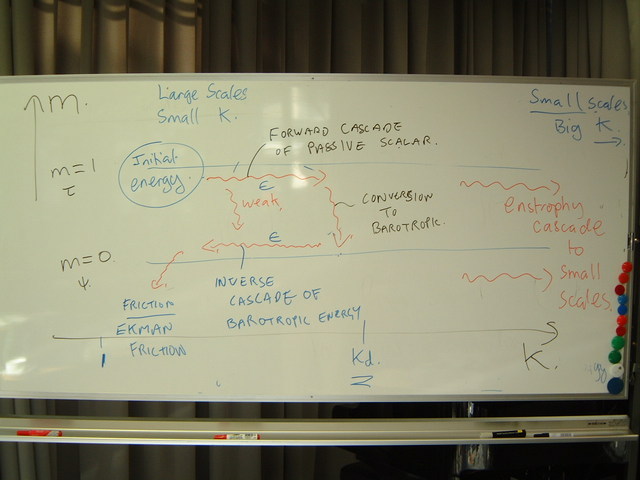 m.
Large Scales
Small K.
Small scales
Big K.
FORWARD CASCADE
OF PASSIVE SCALAR.
m=1
τ
Initial
energy.
ε
weak.
CONVERSION
TO
BAROTROPIC.
enstrophy
cascade
to
small
scales.
m=0.
ψ
ε
INVERSE
CASCADE OF
BAROTROPIC ENERGY
FRICTION
EKMAN
FRICTION
1
Kd.
K.